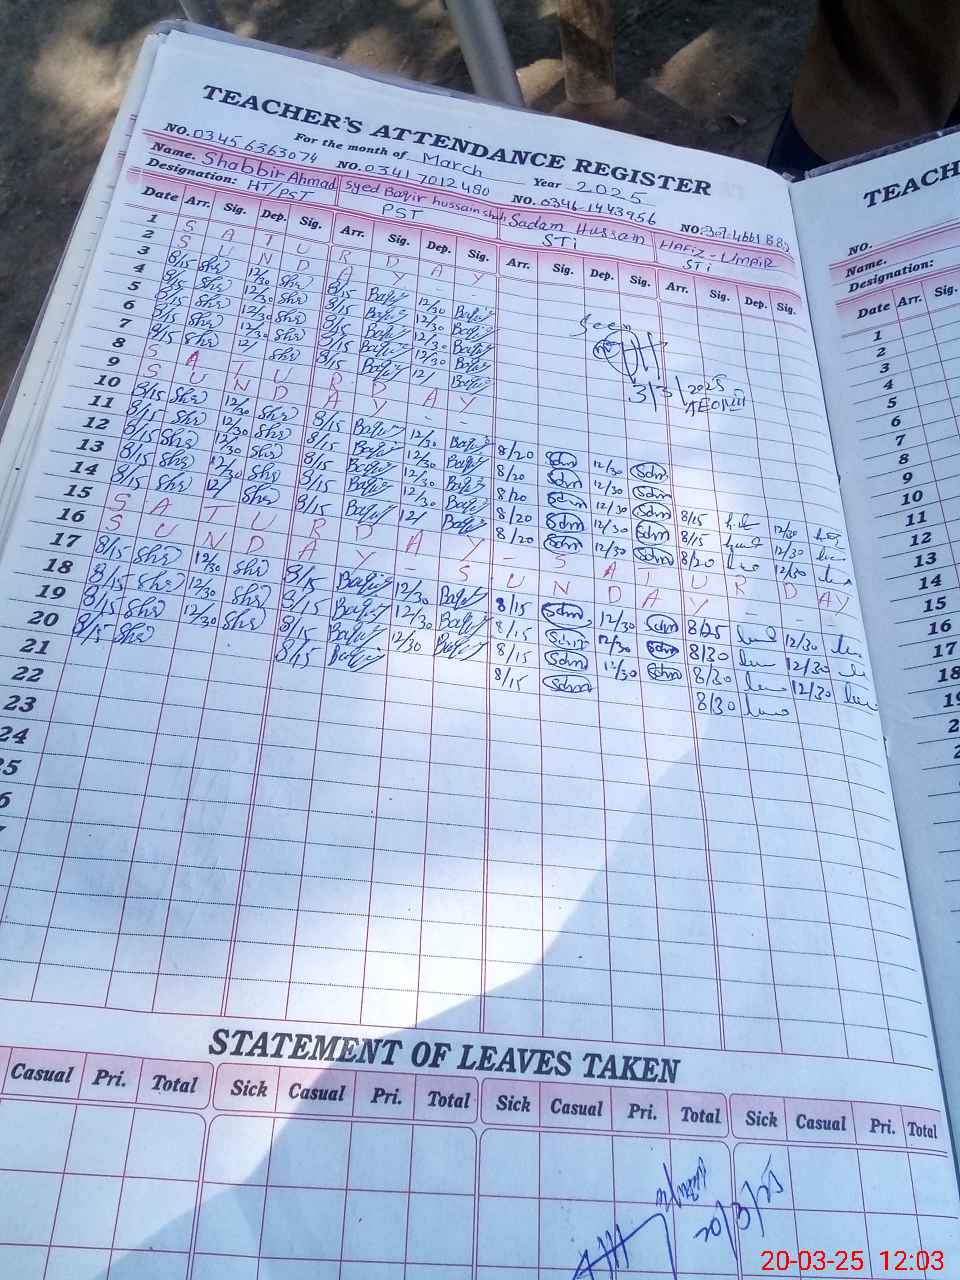 TEACHER'S ATTENDANCE REGISTER
For the month of March Year 2025
NO. 03456363074 NO. 03417012480 NO. 0346-1443956 NO:
Name. Shabbir Ahmad Syed Baqir hussain shah Sadam Hussain HAFiZ-UmAiR
Designation: HT/PST PST STi STi
Date Arr. Sig. Dep. Sig. Arr. Sig. Dep. Sig. Arr. Sig. Dep. Sig. Arr. Sig. Dep. Sig.
1 S A T U R D A Y
2 S U N D A Y - -
3 8/15 Shr 12/30 Shr 8/15 Baqir 12/30 Baqir
4 8/15 Shr 12/30 Shr 8/15 Baqir 12/30 Baqir
5 8/15 Shr 12/30 Shr 8/15 Baqir 12/30 Baqir
6 8/15 Shr 12/30 Shr 8/15 Baqir 12/30 Baqir
7 8/15 Shr 12/ Shr 8/15 Baqir 12/ Baqir
Seen
3/3/2025
8 S A T U R D A Y
9 S U N D A Y - -
10 8/15 Shr 12/30 Shr 8/15 Baqir 12/30 Baqir 8/20 Sdm 12/30 Sdm
11 8/15 Shr 12/30 Shr 8/15 Baqir 12/30 Baqir 8/20 Sdm 12/30 Sdm
12 8/15 Shr 12/ Shr 8/15 Baqir 12/30 Baqir 8/20 Sdm 12/30 Sdm 8/15 12/30
13 8/15 Shr 12/30 Shr 8/15 Baqir 12/30 Baqir 8/20 Sdm 12/30 Sdm 8/15 12/30
14 8/15 Shr 12/ Shr 8/15 Baqir 12/ Baqir 8/20 Sdm 12/30 Sdm 8/20 12/30
15 S A T U R D A Y - S A T U R D A Y
16 S U N D A Y - S U N D A Y - -
17 8/15 Shr 12/30 Shr 8/15 Baqir 12/30 Baqir 8/15 Sdm 12/30 Sdm 8/25 12/30
18 8/15 Shr 12/30 Shr 8/15 Baqir 12/30 Baqir 8/15 Sdm 12/30 Sdm 8/30 12/30
19 8/15 Shr 12/30 Shr 8/15 Baqir 12/30 Baqir 8/15 Sdm 12/30 Sdm 8/30 12/30
20 8/15 Shr 8/15 Baqir 8/15 Sdm 8/30
21
22
23
24
5
6
STATEMENT OF LEAVES TAKEN
Casual Pri. Total Sick Casual Pri. Total Sick Casual Pri. Total Sick Casual Pri. Total
20/3/25
TEACH
NO.
Name.
Designation:
Date Arr. Sig.
1
2
3
4
5
6
7
8
9
10
11
12
13
14
15
16
17
18
19
2
2
20-03-25 12:03